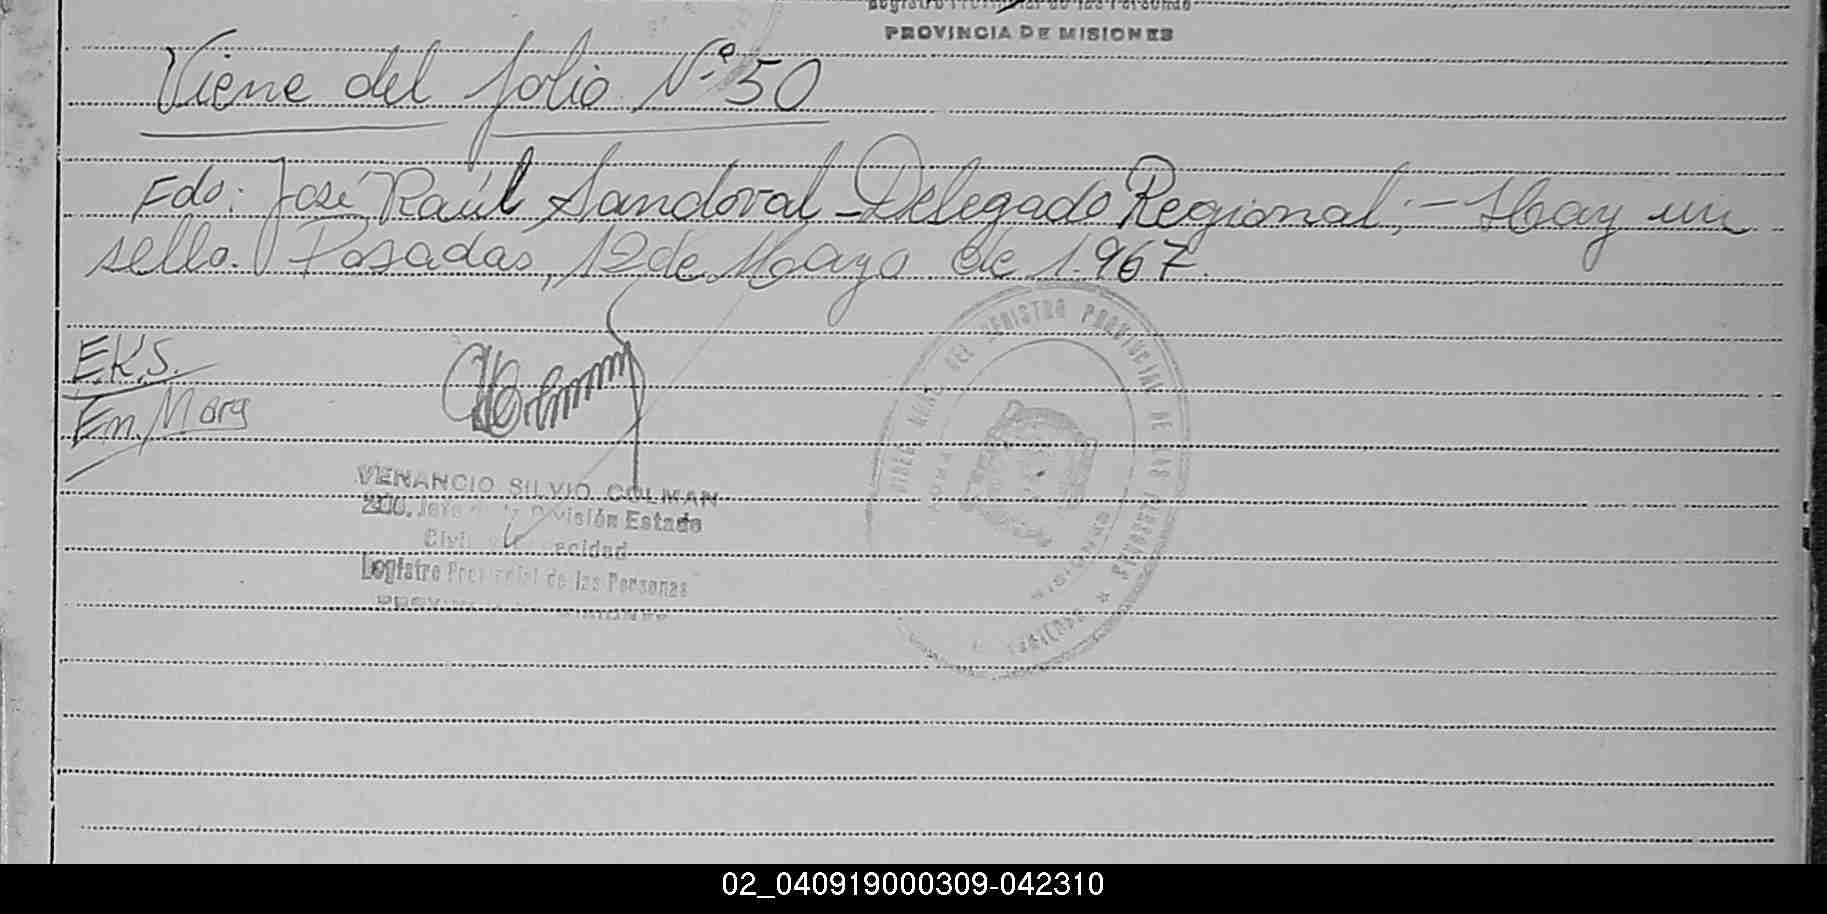 Registro Provincial de las Personas
PROVINCIA DE MISIONES
Viene del folio Nº 50
Fdo: José Raúl Sandoval - Delegado Regional; - Hay un
sello. Posadas, 12 de Mayo de 1.967.
E.K.S.
En. Marg
VENANCIO SILVIO COLMAN
2do. Jefe División Estado
Civil y Capacidad
Registro Provincial de las Personas
PROVINCIA DE MISIONES
DIREC. GRAL. DEL REGISTRO PROVINCIAL DE LAS PERSONAS
MISIONES
02_040919000309-042310